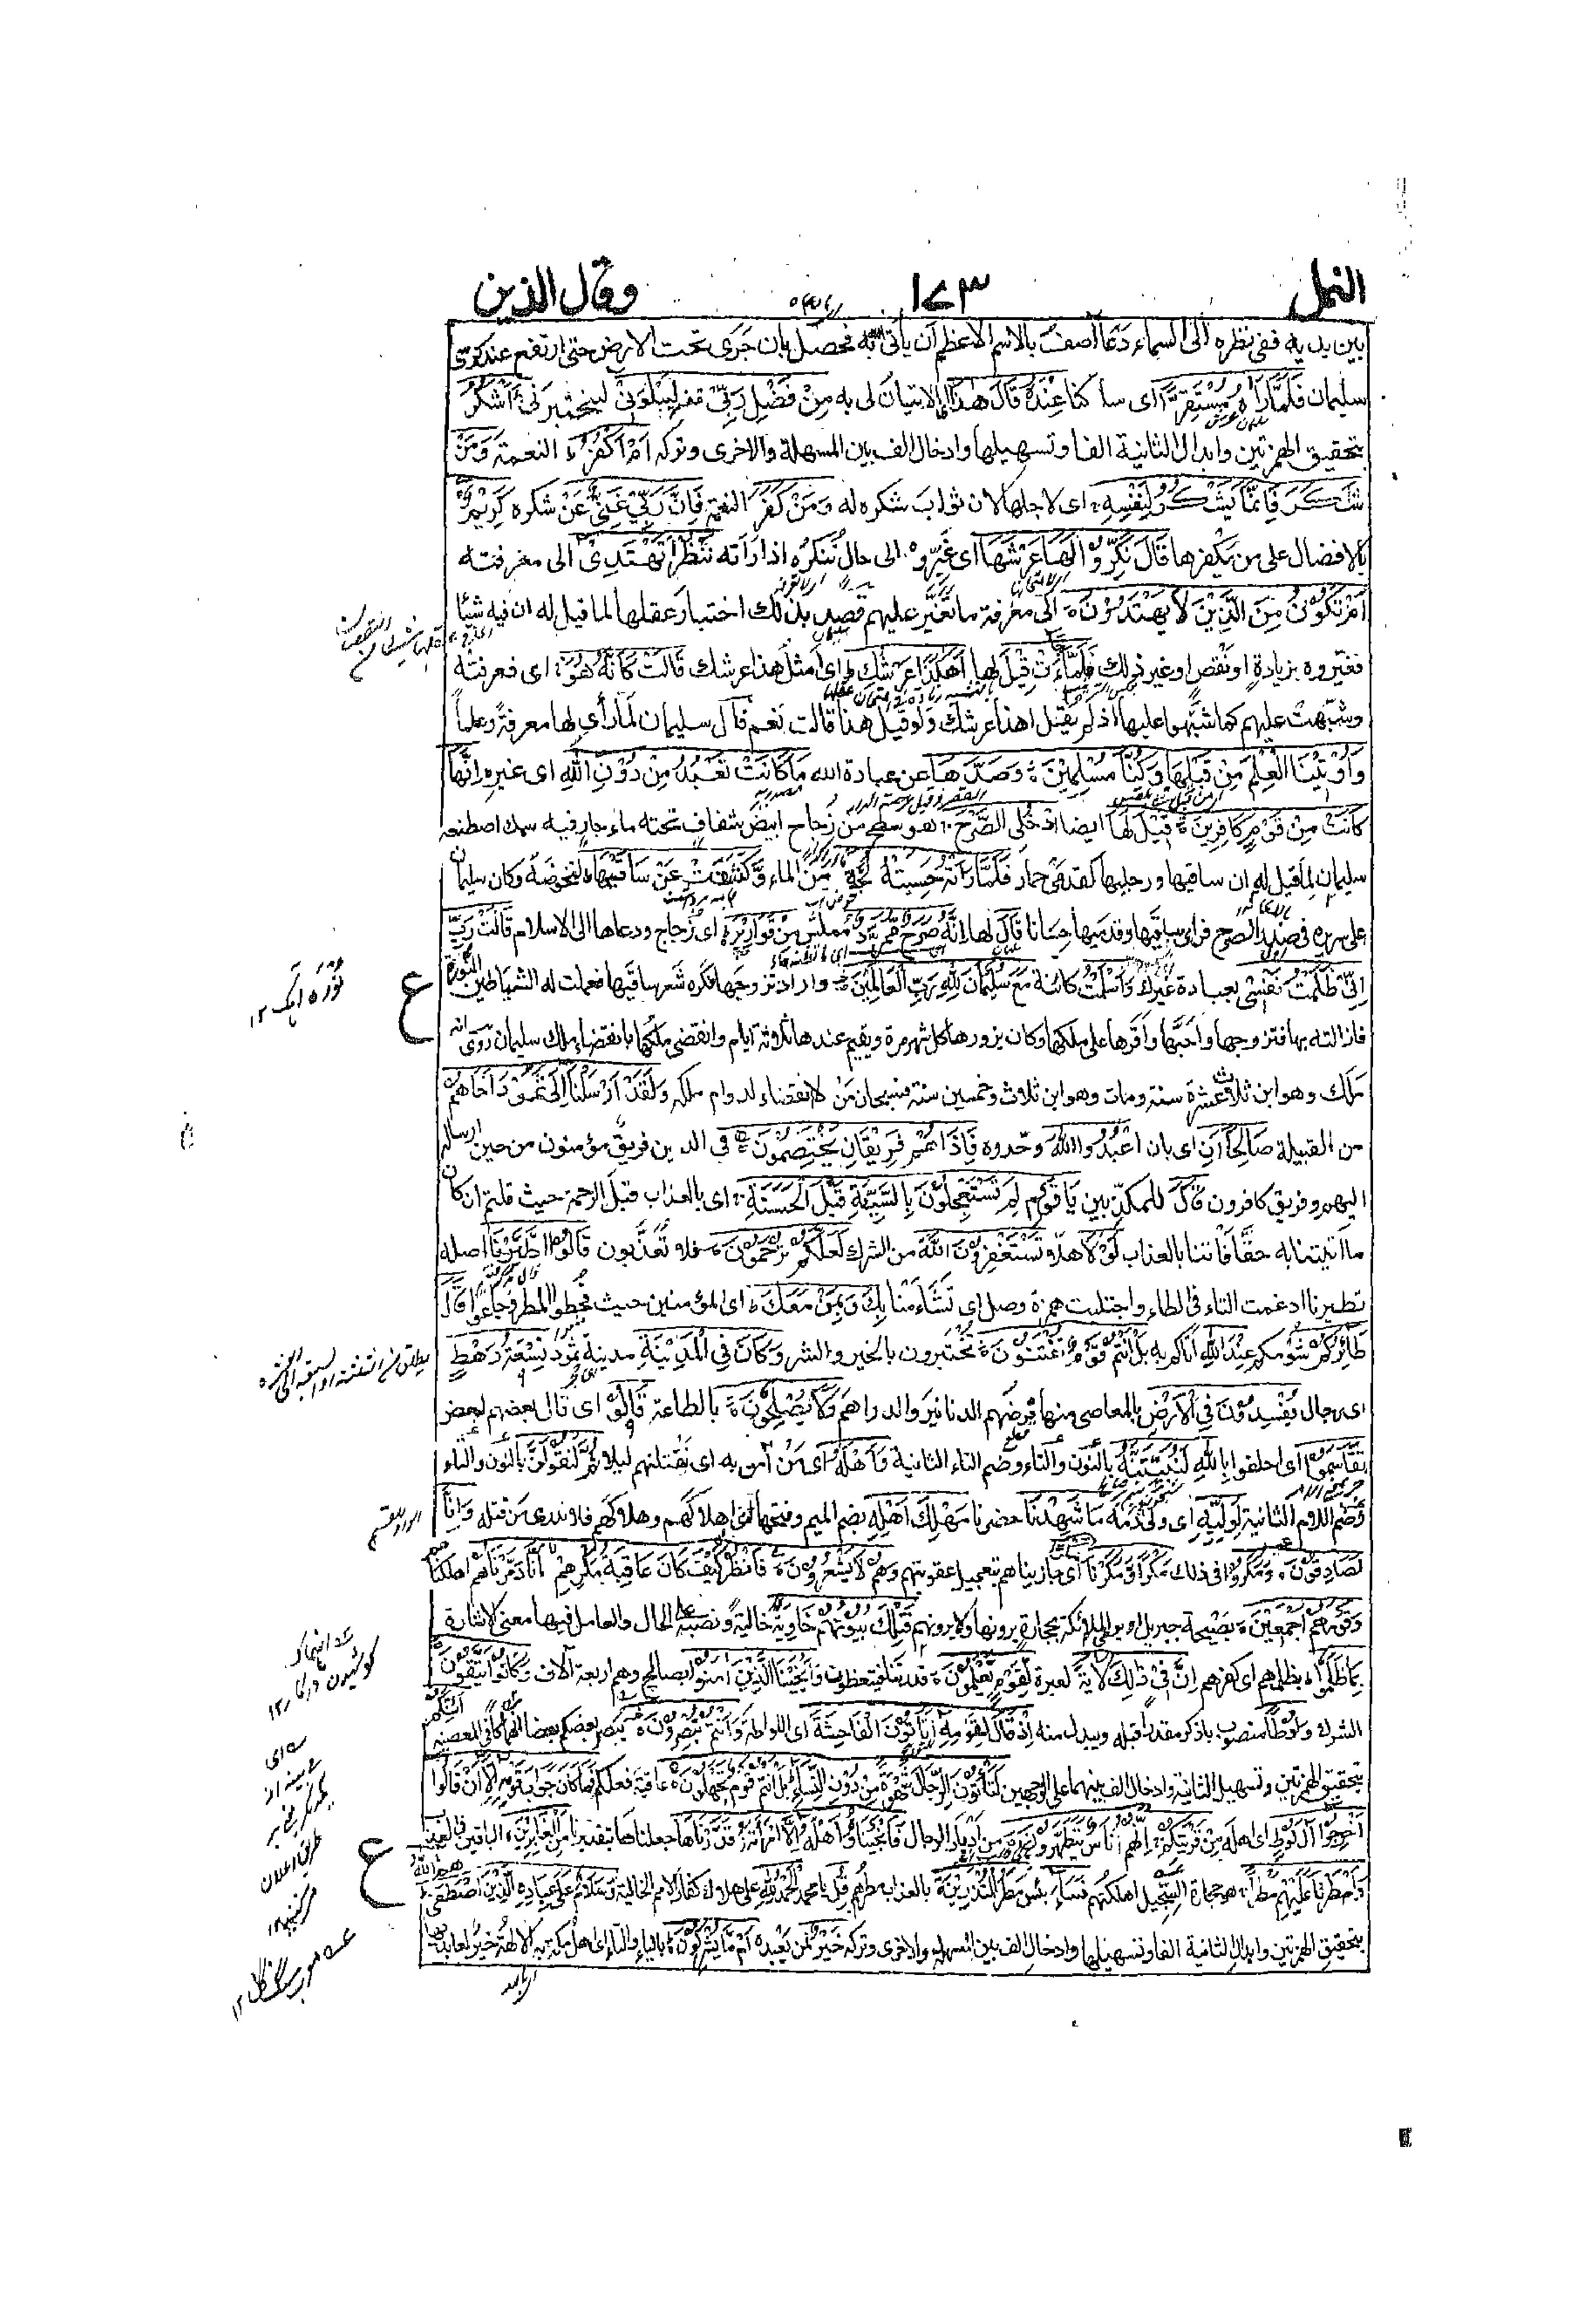 النمل ١٧٣ وقال الذين
بين يديه ففى نظره الى السماء دعا آصف بالاسم الاعظم ان يأتى الله به فحصل بان جرى تحت الارض حتى ارتفع عند كرسى
سليمان فَلَمَّا رَاٰهُ مُسْتَقِرًّا اى ساكنا عِنْدَهٗ قَالَ هٰذَا اى الاتيان لى به مِنْ فَضْلِ رَبِّىْ لِيَبْلُوَنِىْ ليختبرنى ءَاَشْكُرُ
بتحقيق الهمزتين وابدال الثانية الفا وتسهيلها وادخال الف بين المسهلة والاخرى وتركه اَمْ اَكْفُرُ النعمة وَمَنْ
شَكَرَ فَاِنَّمَا يَشْكُرُ لِنَفْسِهٖ اى لاجلها لان ثواب شكره له وَمَنْ كَفَرَ النعمة فَاِنَّ رَبِّىْ غَنِىٌّ عَنْ شكره كَرِيْمٌ
بالافضال على من يكفرها قَالَ نَكِّرُوْا لَهَا عَرْشَهَا اى غَيِّروه الى حال تنكره اذا رأته نَنْظُرْ اَتَهْتَدِىْ الى معرفته
اَمْ تَكُوْنُ مِنَ الَّذِيْنَ لَا يَهْتَدُوْنَ الى معرفة ما تغير عليهم قصد بذلك اختبار عقلها لما قيل له ان فيه شيئا
فغيروه بزيادة او نقص او غير ذلك فَلَمَّا جَاءَتْ قِيْلَ لها اَهٰكَذَا عَرْشُكِ اى امثل هذا عرشك قَالَتْ كَاَنَّهٗ هُوَ اى فعرفته
وشبهت عليهم كما شبهوا عليها اذ لم يقل اهذا عرشك ولو قيل هذا قالت نعم قال سليمان لما رأى لها معرفة وعلما
وَاُوْتِيْنَا الْعِلْمَ مِنْ قَبْلِهَا وَكُنَّا مُسْلِمِيْنَ وَصَدَّهَا عن عبادة الله مَا كَانَتْ تَعْبُدُ مِنْ دُوْنِ اللّٰهِ اى غيره اِنَّهَا
كَانَتْ مِنْ قَوْمٍ كَافِرِيْنَ قِيْلَ لَهَا ايضا ادْخُلِى الصَّرْحَ هو سطح من زجاج ابيض شفاف تحته ماء جار فيه سمك اصطنعه
سليمان لما قيل له ان ساقيها ورجليها كقدمى حمار فَلَمَّا رَاَتْهُ حَسِبَتْهُ لُجَّةً من الماء وَكَشَفَتْ عَنْ سَاقَيْهَا لتخوضه وكان سليمان
على سريره فى صدر الصرح فراى ساقيها وقدميها حسانا قَالَ لها اِنَّهٗ صَرْحٌ مُّمَرَّدٌ مملس مِّنْ قَوَارِيْرَ اى زجاج ودعاها الى الاسلام قَالَتْ رَبِّ
اِنِّىْ ظَلَمْتُ نَفْسِىْ بعبادة غيرك وَاَسْلَمْتُ كائنة مَعَ سُلَيْمَانَ لِلّٰهِ رَبِّ الْعَالَمِيْنَ واراد تزوجها فكره شعر ساقيها فعملت له الشياطين النورة
فازالته بها فتزوجها واحبها واقرها على ملكها وكان يزورها كل شهر مرة ويقيم عندها ثلاثة ايام وانقضى ملكها بانقضاء ملك سليمان روى انه
ملك وهو ابن ثلاث عشرة سنة ومات وهو ابن ثلاث وخمسين سنة فسبحان من لا انقضاء لدوام ملكه وَلَقَدْ اَرْسَلْنَا اِلٰى ثَمُوْدَ اَخَاهُمْ
من القبيلة صَالِحًا اَنِ اى بان اعْبُدُوا اللّٰهَ وحدوه فَاِذَا هُمْ فَرِيْقَانِ يَخْتَصِمُوْنَ فى الدين فريق مؤمنون من حين ارساله
اليهم وفريق كافرون قَالَ للمكذبين يَا قَوْمِ لِمَ تَسْتَعْجِلُوْنَ بِالسَّيِّئَةِ قَبْلَ الْحَسَنَةِ اى بالعذاب قبل الرحمة حيث قلتم ان كان
ما اتيتنا به حقا فأتنا بالعذاب لَوْلَا هلا تَسْتَغْفِرُوْنَ اللّٰهَ من الشرك لَعَلَّكُمْ تُرْحَمُوْنَ فلا تعذبون قَالُوا اطَّيَّرْنَا اصله
تطيرنا ادغمت التاء فى الطاء واجتلبت همزة وصل اى تشاءمنا بِكَ وَبِمَنْ مَعَكَ اى المؤمنين حيث قحطوا المطر وجاعوا قَالَ
طَائِرُكُمْ شؤمكم عِنْدَ اللّٰهِ اتاكم به بَلْ اَنْتُمْ قَوْمٌ تُفْتَنُوْنَ تختبرون بالخير والشر وَكَانَ فِى الْمَدِيْنَةِ مدينة ثمود تِسْعَةُ رَهْطٍ
اى رجال يُفْسِدُوْنَ فِى الْاَرْضِ بالمعاصى منها قرضهم الدنانير والدراهم وَلَا يُصْلِحُوْنَ بالطاعة قَالُوْا اى قال بعضهم لبعض
تَقَاسَمُوْا اى احلفوا بِاللّٰهِ لَنُبَيِّتَنَّهٗ بالنون والتاء وضم التاء الثانية وَاَهْلَهٗ اى من امن به اى نقتلهم ليلا ثُمَّ لَنَقُوْلَنَّ بالنون والتاء
وضم اللام الثانية لِوَلِيِّهٖ اى ولى دمه مَا شَهِدْنَا حضرنا مَهْلِكَ اَهْلِهٖ بضم الميم وفتحها اى اهلاكهم وهلاكهم فلا ندرى من قتله وَاِنَّا
لَصَادِقُوْنَ وَمَكَرُوْا فى ذلك مَكْرًا وَمَكَرْنَا مَكْرًا اى جازيناهم بتعجيل عقوبتهم وَهُمْ لَا يَشْعُرُوْنَ فَانْظُرْ كَيْفَ كَانَ عَاقِبَةُ مَكْرِهِمْ اَنَّا دَمَّرْنَاهُمْ اهلكناهم
وَقَوْمَهُمْ اَجْمَعِيْنَ بصيحة جبريل او برمى الملائكة بحجارة يرونها ولا يرونهم فَتِلْكَ بُيُوْتُهُمْ خَاوِيَةً خالية ونصبه على الحال والعامل فيها معنى الاشارة
بِمَا ظَلَمُوْا بظلمهم اى كفرهم اِنَّ فِىْ ذٰلِكَ لَاٰيَةً لعبرة لِّقَوْمٍ يَّعْلَمُوْنَ قدرتنا فيتعظون وَاَنْجَيْنَا الَّذِيْنَ اٰمَنُوْا بصالح وهم اربعة الاف وَكَانُوْا يَتَّقُوْنَ
الشرك وَلُوْطًا منصوب باذكر مقدرا قبله ويبدل منه اِذْ قَالَ لِقَوْمِهٖ اَتَاْتُوْنَ الْفَاحِشَةَ اى اللواطة وَاَنْتُمْ تُبْصِرُوْنَ يبصر بعضكم بعضا انهماكا فى المعصية اَئِنَّكُمْ
بتحقيق الهمزتين وتسهيل الثانية وادخال الف بينهما على الوجهين لَتَاْتُوْنَ الرِّجَالَ شَهْوَةً مِّنْ دُوْنِ النِّسَاءِ بَلْ اَنْتُمْ قَوْمٌ تَجْهَلُوْنَ عاقبة فعلكم فَمَا كَانَ جَوَابَ قَوْمِهٖ اِلَّا اَنْ قَالُوْا
اَخْرِجُوْا اٰلَ لُوْطٍ اى اهله مِّنْ قَرْيَتِكُمْ اِنَّهُمْ اُنَاسٌ يَّتَطَهَّرُوْنَ من ادبار الرجال فَاَنْجَيْنَاهُ وَاَهْلَهٗ اِلَّا امْرَاَتَهٗ قَدَّرْنَاهَا جعلناها بتقديرنا مِنَ الْغَابِرِيْنَ الباقين فى العذاب
وَاَمْطَرْنَا عَلَيْهِمْ مَّطَرًا هو حجارة السجيل اهلكتهم فَسَاءَ بئس مَطَرُ الْمُنْذَرِيْنَ بالعذاب مطرهم قُلِ يا محمد الْحَمْدُ لِلّٰهِ على هلاك كفار الامم الخالية وَسَلَامٌ عَلٰى عِبَادِهِ الَّذِيْنَ اصْطَفٰى
بتحقيق الهمزتين وابدال الثانية الفا وتسهيلها وادخال الف بين المسهلة والاخرى وتركه خَيْرٌ لمن يعبده اَمْ مَّا يُشْرِكُوْنَ بالياء والتاء اى اهل مكة به الالهة خير لعابديها
ع
نُوْرَه آهك ١٢
ع